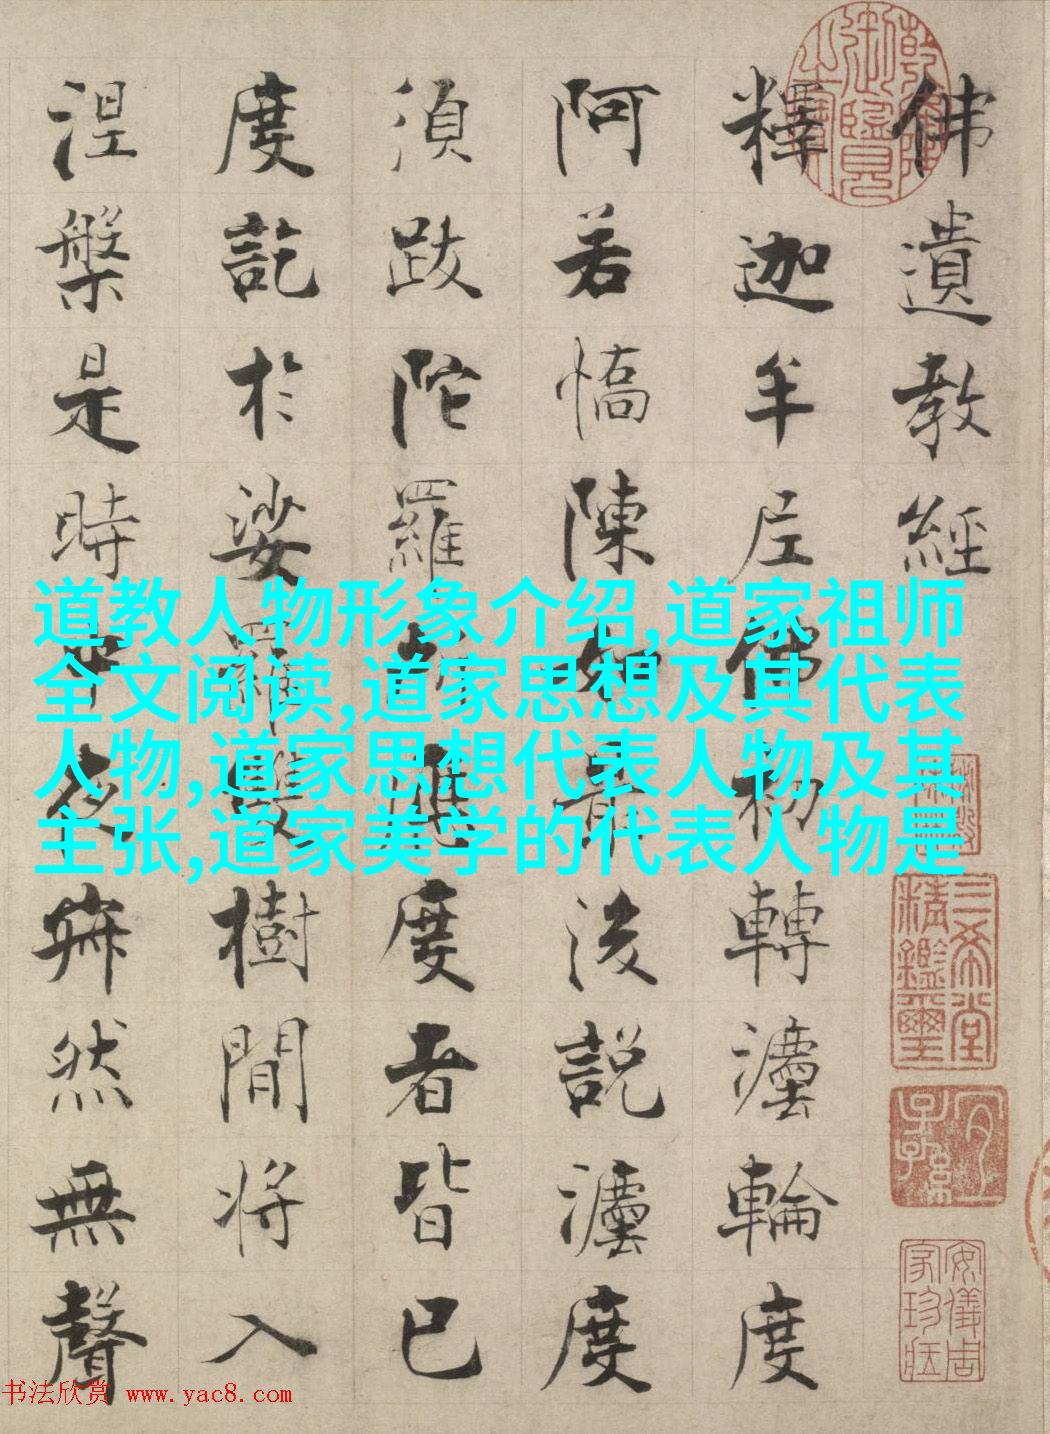 佛遺教經
釋迦牟尼佛初轉灋輪度
阿若憍陳如最後説灋度
須跋陀羅所應度者皆已
度訖於娑羅雙樹間将入
涅槃是時中夜寂然無聲
道教人物形象介绍,道家祖师
全文阅读,道家思想及其代表
人物,道家思想代表人物及其
主张,道家美学的代表人物是
三希堂
精鑑璽
宜子孫
安儀周
家珍藏
书法欣赏 www.yac8.com